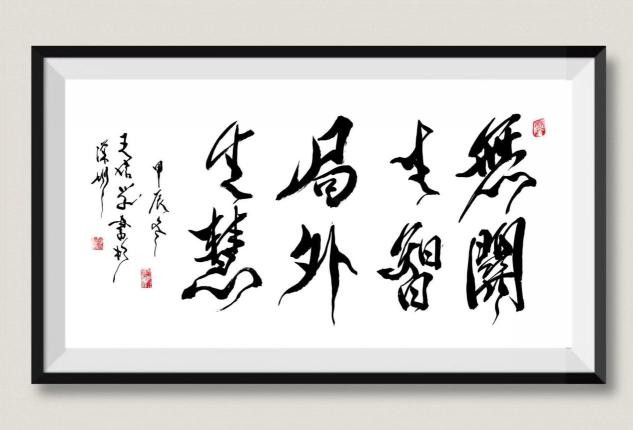 無關
生智
局外
生慧
甲辰冬
書於
深圳